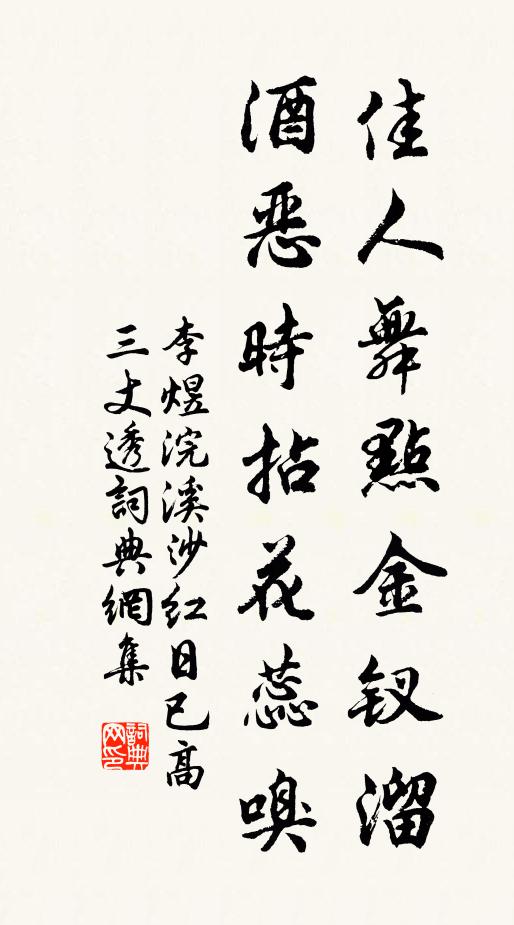 佳人舞點金釵溜
酒惡時拈花蕊嗅
李煜浣溪沙紅日已高
三丈透詞典網集
詞典
网印